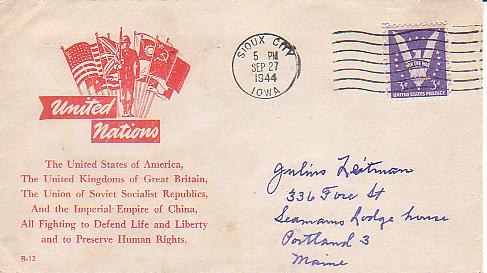 United
Nations
The United States of America,
The United Kingdoms of Great Britain,
The Union of Soviet Socialist Republics,
And the Imperial Empire of China,
All Fighting to Defend Life and Liberty
and to Preserve Human Rights.
B-12
SIOUX CITY
5 PM
SEP 27
1944
IOWA
WIN THE WAR
3¢ 3¢
UNITED STATES POSTAGE
Julius Leitman
336 Fore St
Seamans Lodge house
Portland 3
Maine